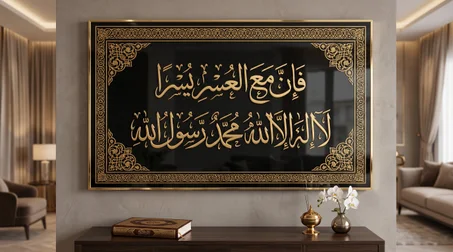 فَإِنَّ مَعَ الْعُسْرِ يُسْرًا
لَا إِلٰهَ إِلَّا اللهُ مُحَمَّدٌ رَسُولُ اللهِ